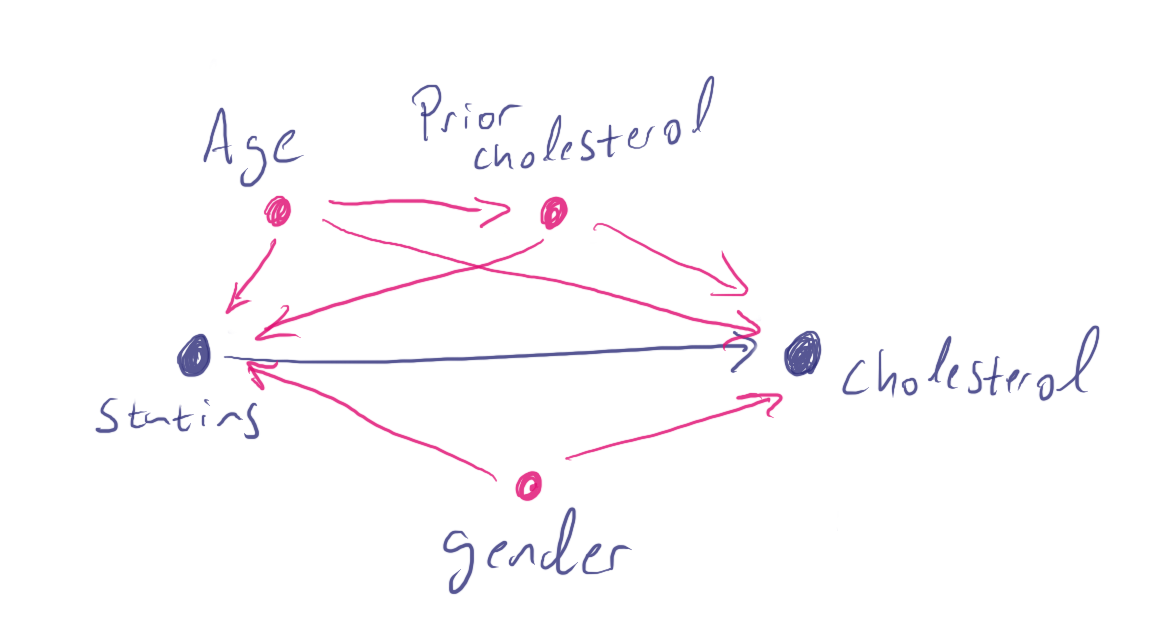 Age
Prior
cholesterol
Statins
cholesterol
gender